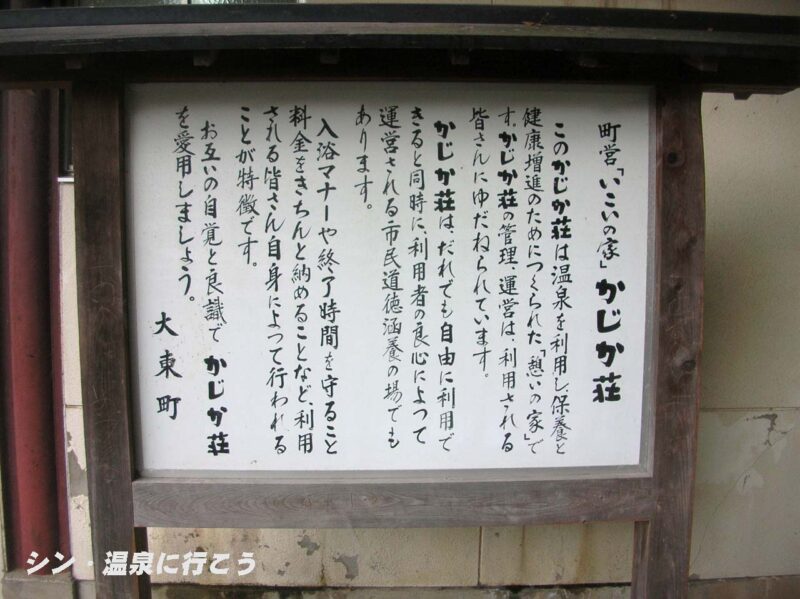 町営「いこいの家」かじか荘
このかじか荘は温泉を利用し、保養と
健康増進のためにつくられた「憩いの家」で
す。かじか荘の管理、運営は、利用される
皆さんにゆだねられています。
かじか荘は、だれでも自由に利用で
きると同時に、利用者の良心によって
運営される市民道徳涵養の場でも
あります。
入浴マナーや終了時間を守ること
料金をきちんと納めることなど、利用
される皆さん自身によって行われる
ことが特徴です。
お互いの自覚と良識でかじか荘
を愛用しましょう。
大東町
シン・温泉に行こう